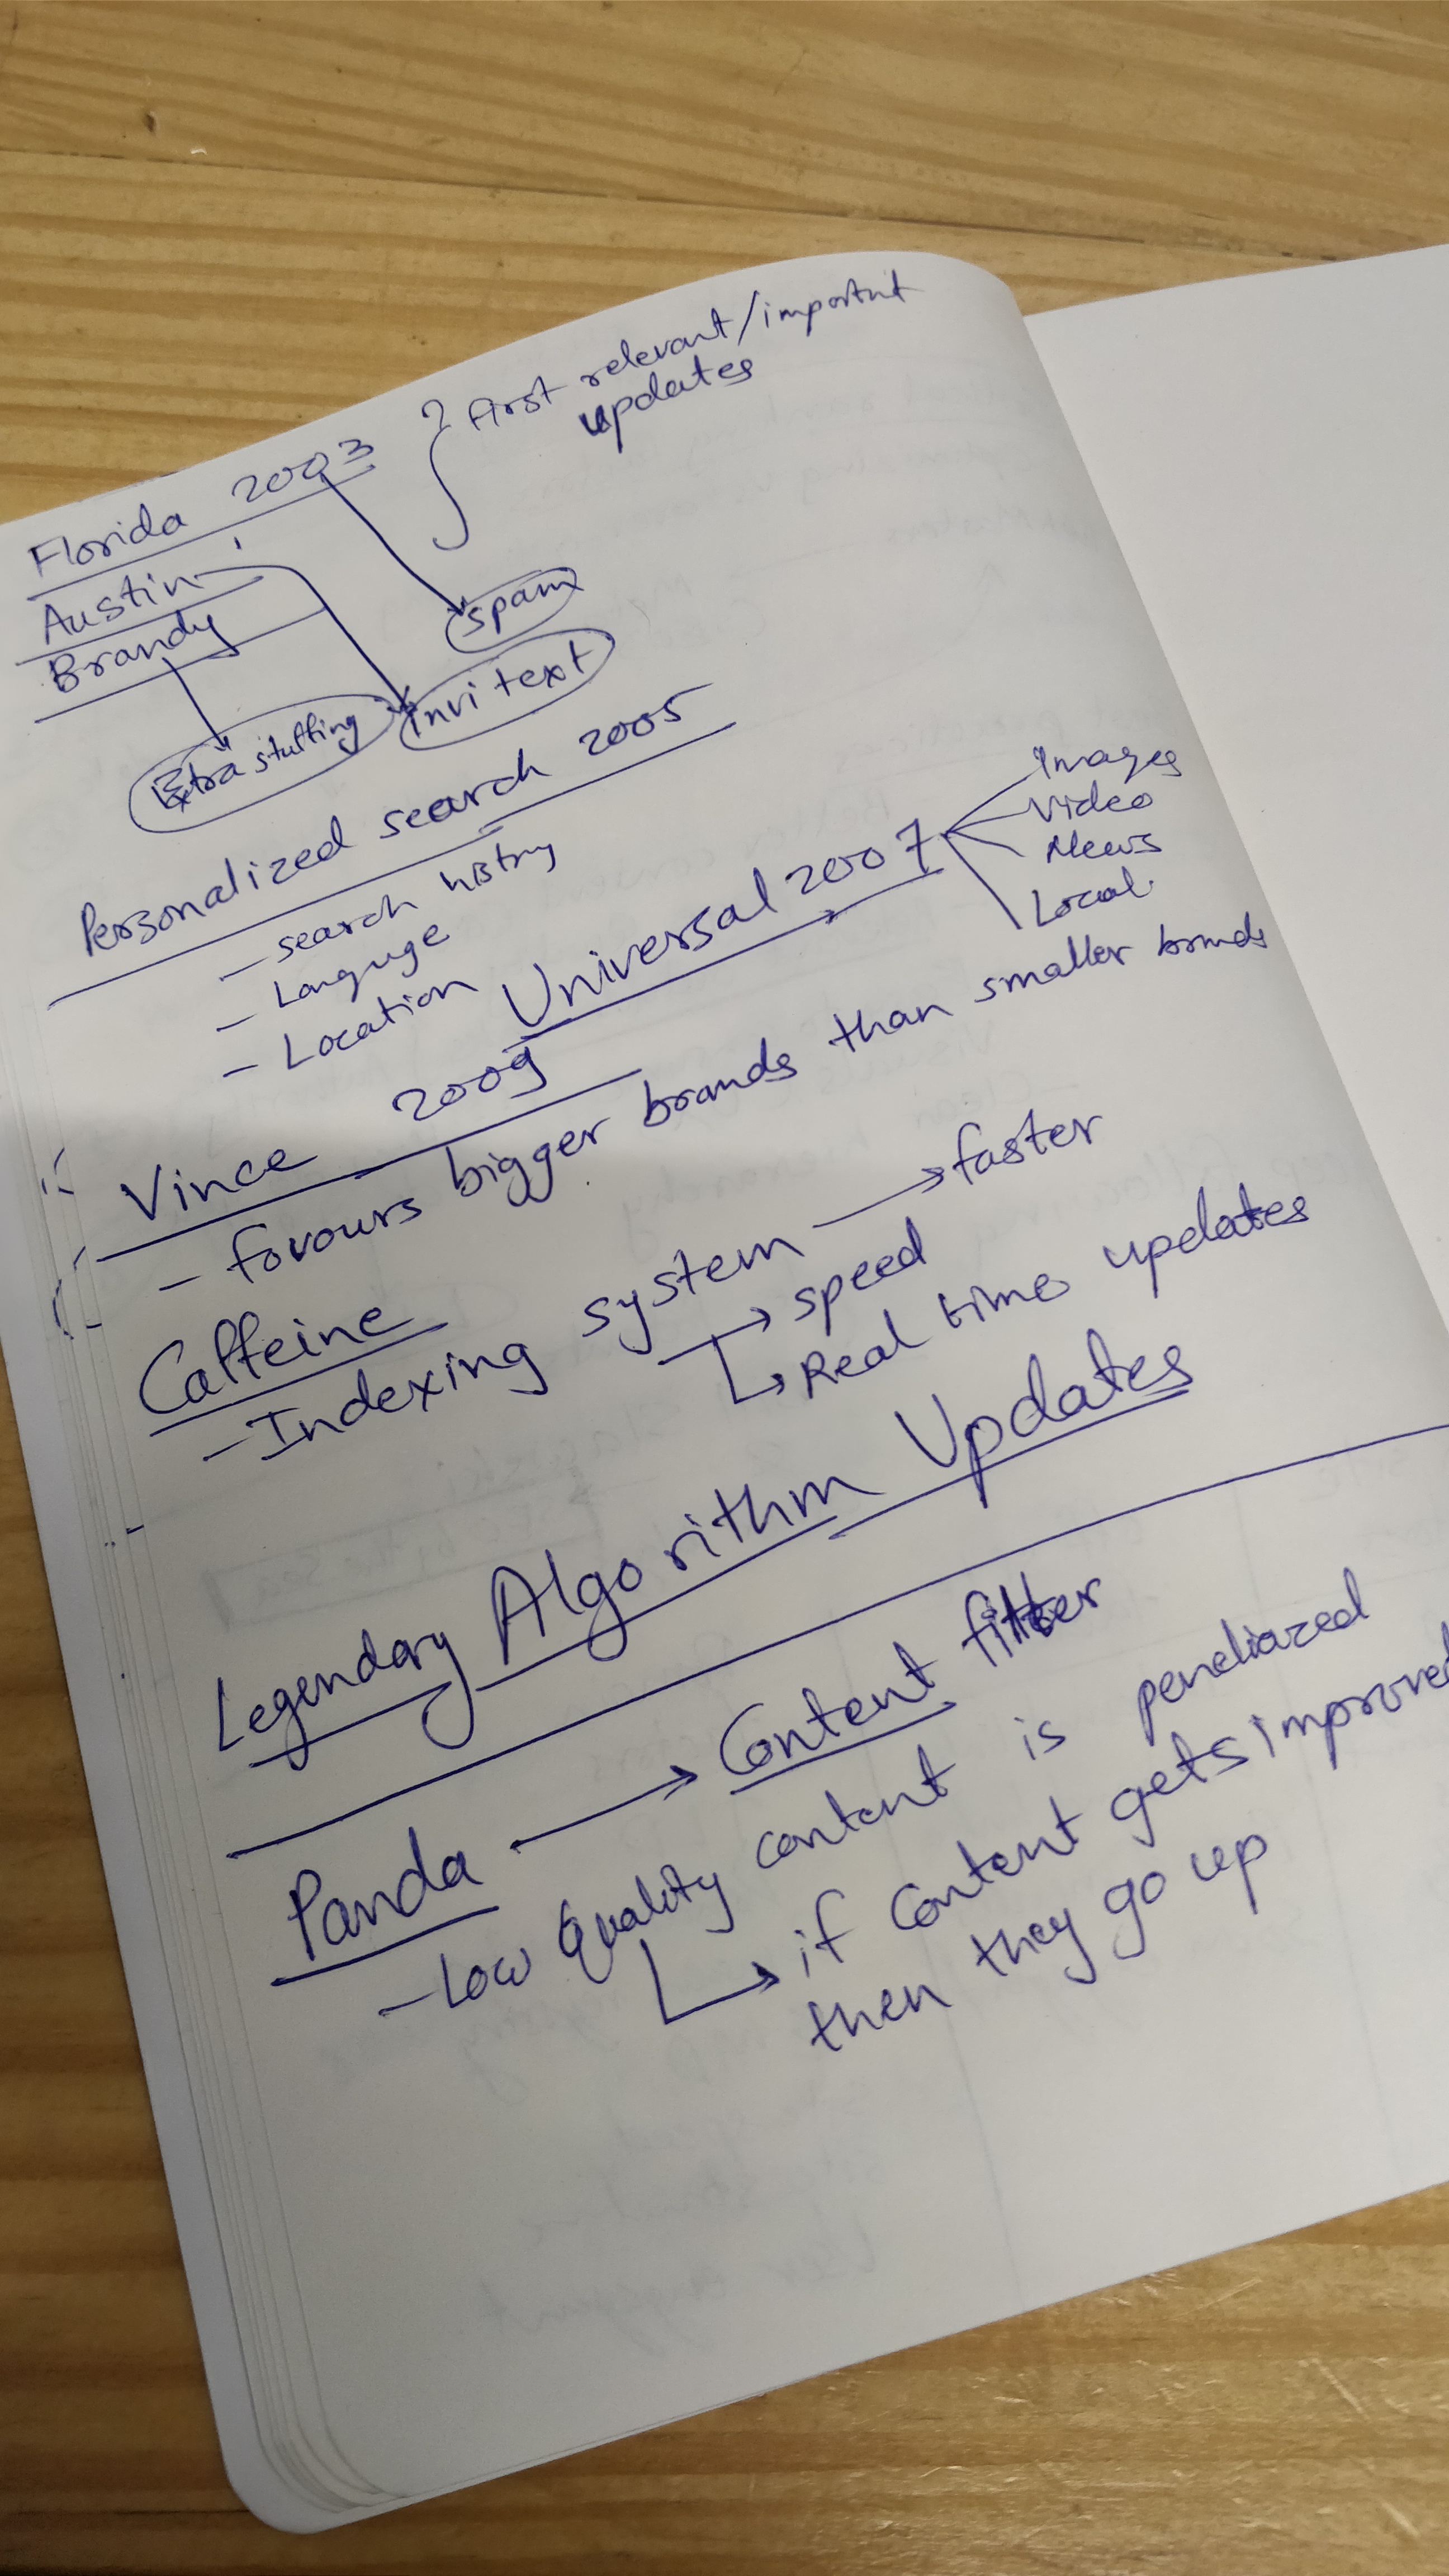 Florida 2003
First relevant/important
updates
Austin
Brandy
spam
invi text
Extra stuffing
Personalized search 2005
- search histry
- Languge
- Location
Universal 2007
Images
Video
News
Local
Vince 2009
- favours bigger brands than smaller brands
Caffeine
- Indexing system → faster
→ speed
→ Real time updates
Legendary Algorithm Updates
Panda → Content filter
- Low Quality content is peneliazed
→ if content gets improved
then they go up